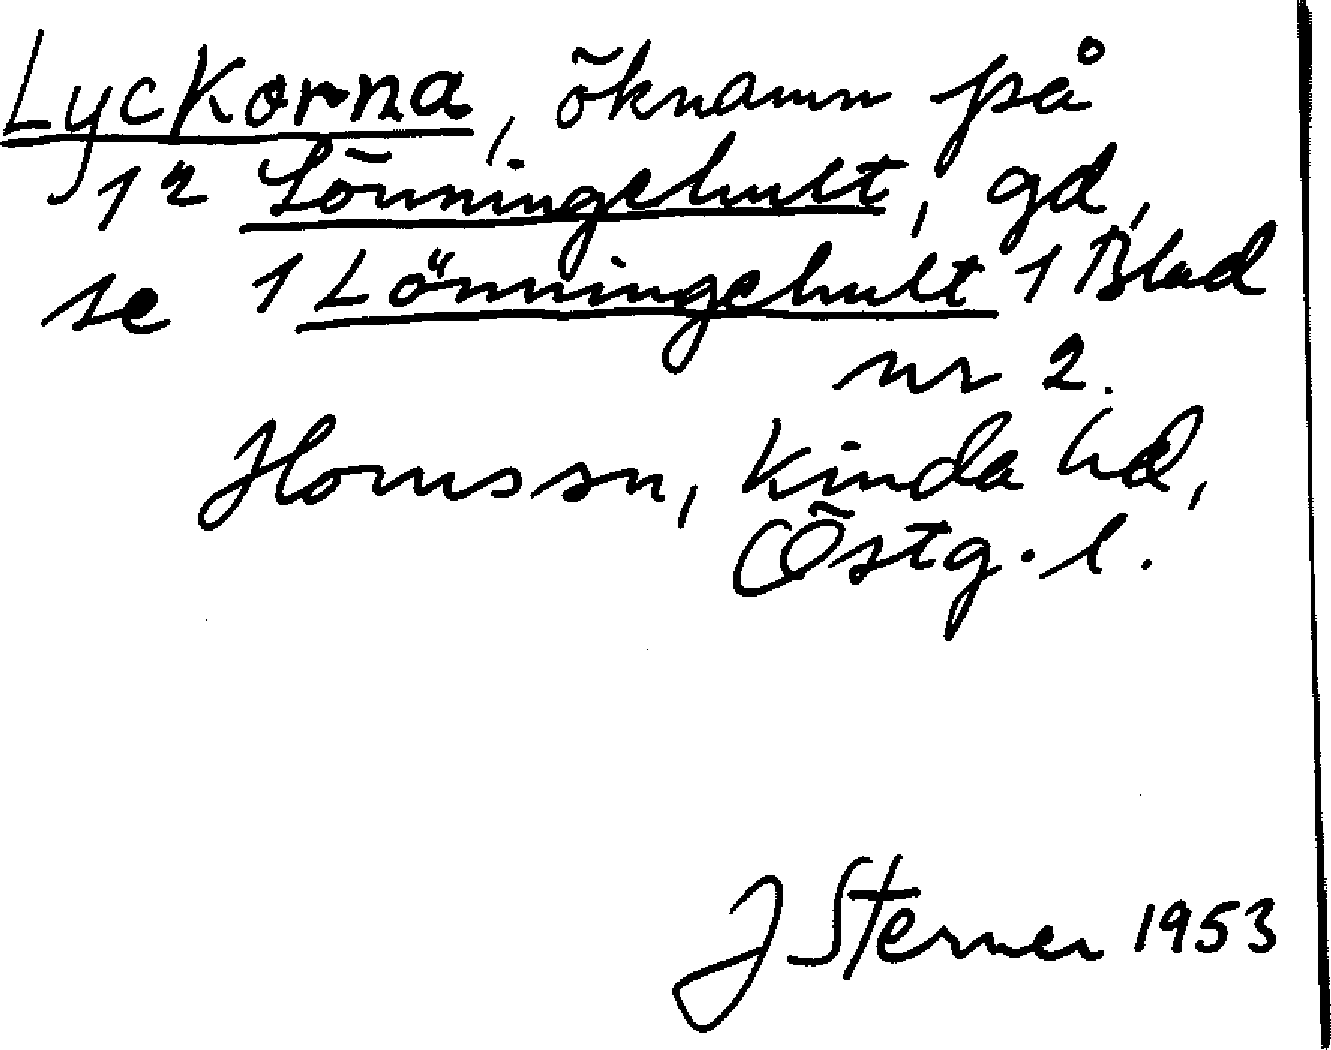 Lyckorna, öknamn på
1² Lönningehult, gd,
se 1 Lönningehult 1 Blad
nr 2.
Hornssn, Kinda hd,
Östg. l.
J Sterner 1953